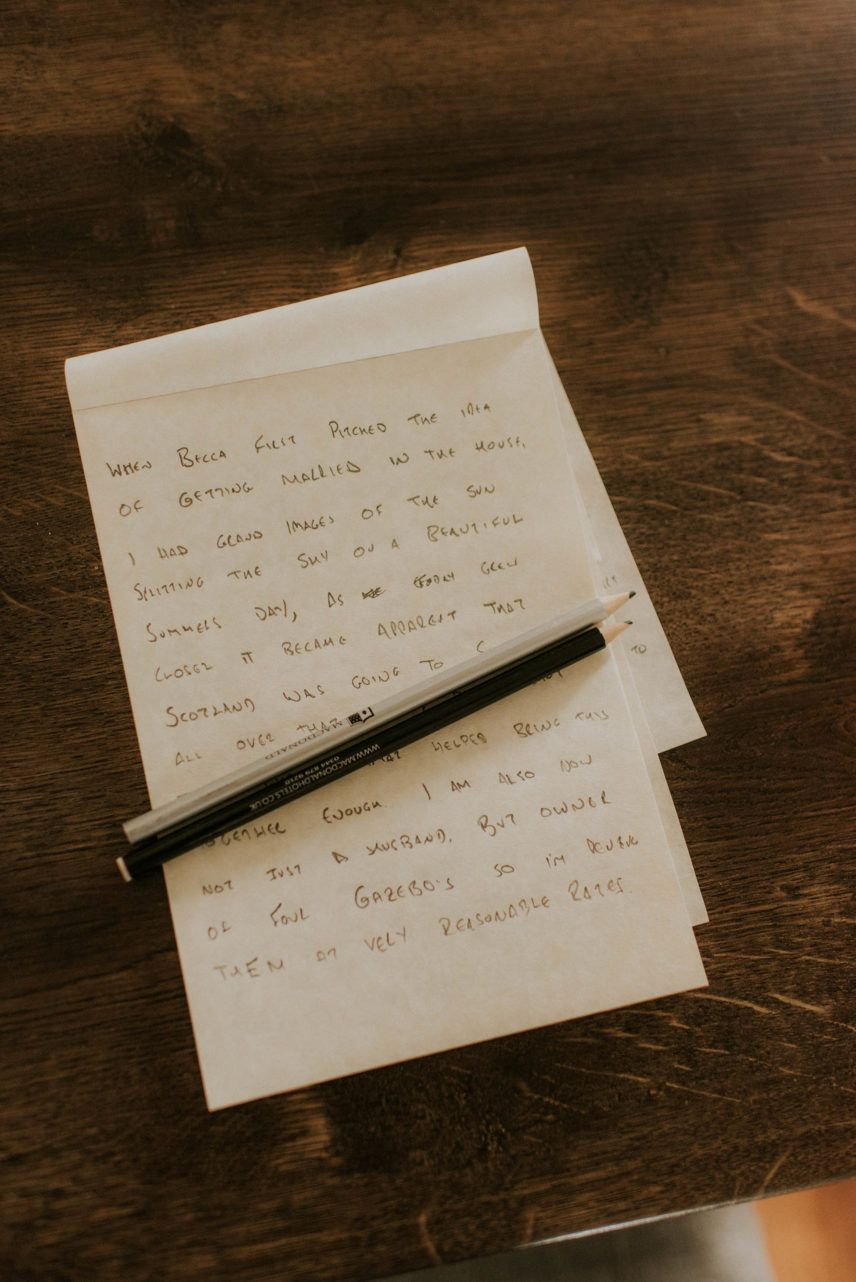 WHEN BECCA FIRST PITCHED THE IDEA
OF GETTING MARRIED IN THE HOUSE,
I HAD GRAND IMAGES OF THE SUN
SPLITTING THE SKY ON A BEAUTIFUL
SUMMERS DAY, AS TODAY GREW
CLOSER IT BECAME APPARENT THAT
SCOTLAND WAS GOING TO
ALL OVER THAT
MACDONALD
WWW.MACDONALDHOTELS.CO.UK
0344 879 9210
HELPED BRING THIS
TOGETHER ENOUGH. I AM ALSO NOW
NOT JUST A HUSBAND, BUT OWNER
OF FOUR GAZEBO'S SO I'M
THEM AT VERY REASONABLE RATES.
TO